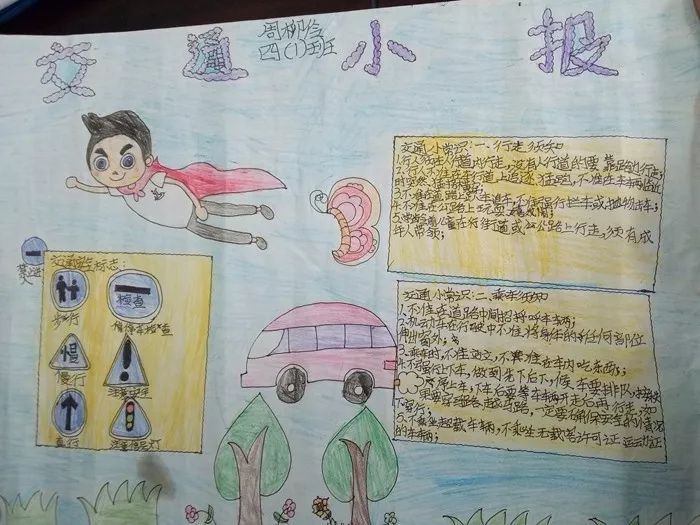 交通小报
周柳
四(1)班
交通小常识:一、行走须知
1.行人须在人行道内行走,没有人行道的要靠路边行走;
2.行人不准在车行道上追逐、猛跑,不准在车辆临近
时突然
4.不准在公路上玩
学龄前儿童在街道或公路上行走,须有成
年人带领;
交通安全标志:
步行
检查
停车检查
慢
慢行
直行
注意信号灯
交通小常识:二、乘车须知
1.不准在道路中间招呼车辆;
机动车在行驶中不准将身体的任何部位
伸出窗外;
3.乘车时,不准站立,不准在车内吃东西;
4.不准强行上下车,做到先下后上,候车要排队,按秩
序上车,下车后要等车辆开走后再行走,如
要穿越马路,一定要确保安全的情况
下穿行;
5.不乘坐超载车辆,不乘坐无载客许可证、运行证
的车辆;